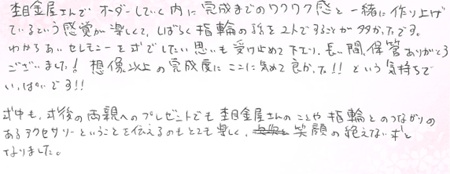 杢目金屋さんで オーダーしていく内に 完成までのワクワク感と 一緒に作り上げ
ているという感覚が楽しくて、しばらく指輪の話を2人ですることが多かったです。
わかちあいセレモニーを式でしたい思いも受け止めて下さり、長い間、保管ありがとう
ございました! 想像以上の完成度に ここに決めて良かった!! という気持ちで
いっぱいです!!
式中も、式後の両親へのプレゼントでも 杢目金屋さんのことや 指輪とのつながりの
あるアクセサリーということを伝えるのもとても楽しく、笑顔の絶えない式と
なりました。